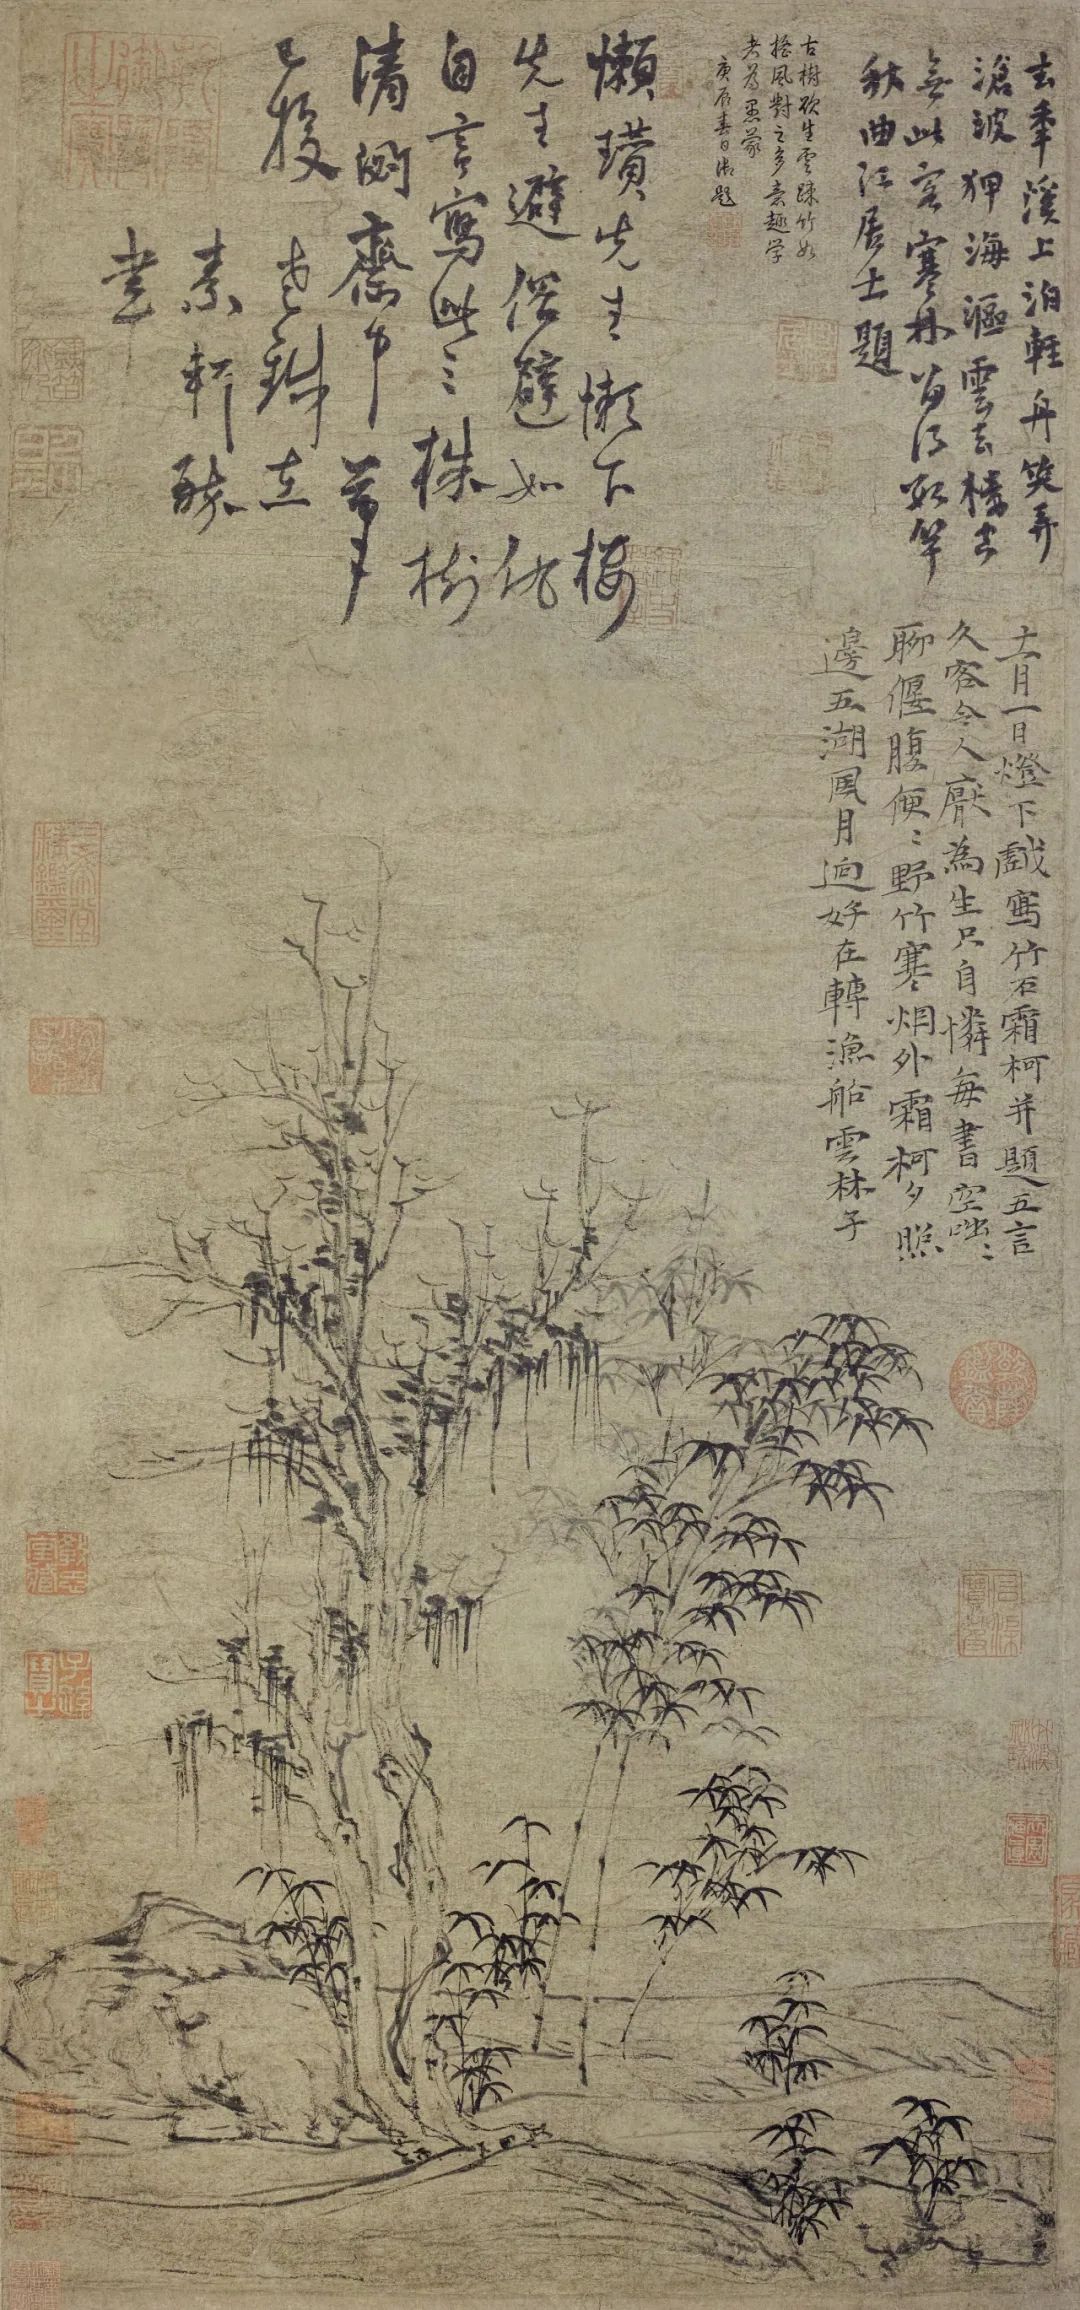 去年溪上泊輕舟笑弄
滄波狎海漚雲去樓空
無此客寒林留得数竿
秋曲江居士題
古樹欲生雲疎竹如
搖風對之多意趣学
者為愚蒙
庚辰春日御題
懶瓚先生懶下樓
先生避俗避如仇
自言寫此三株樹
清閟齋中筆
已投老銕在
素軒醉
書
十一月一日燈下戲寫竹石霜柯并題五言
久客令人厭為生只自憐每書空咄〻
聊偃腹便〻野竹寒烟外霜柯夕照
邊五湖風月迥好在轉漁船雲林子